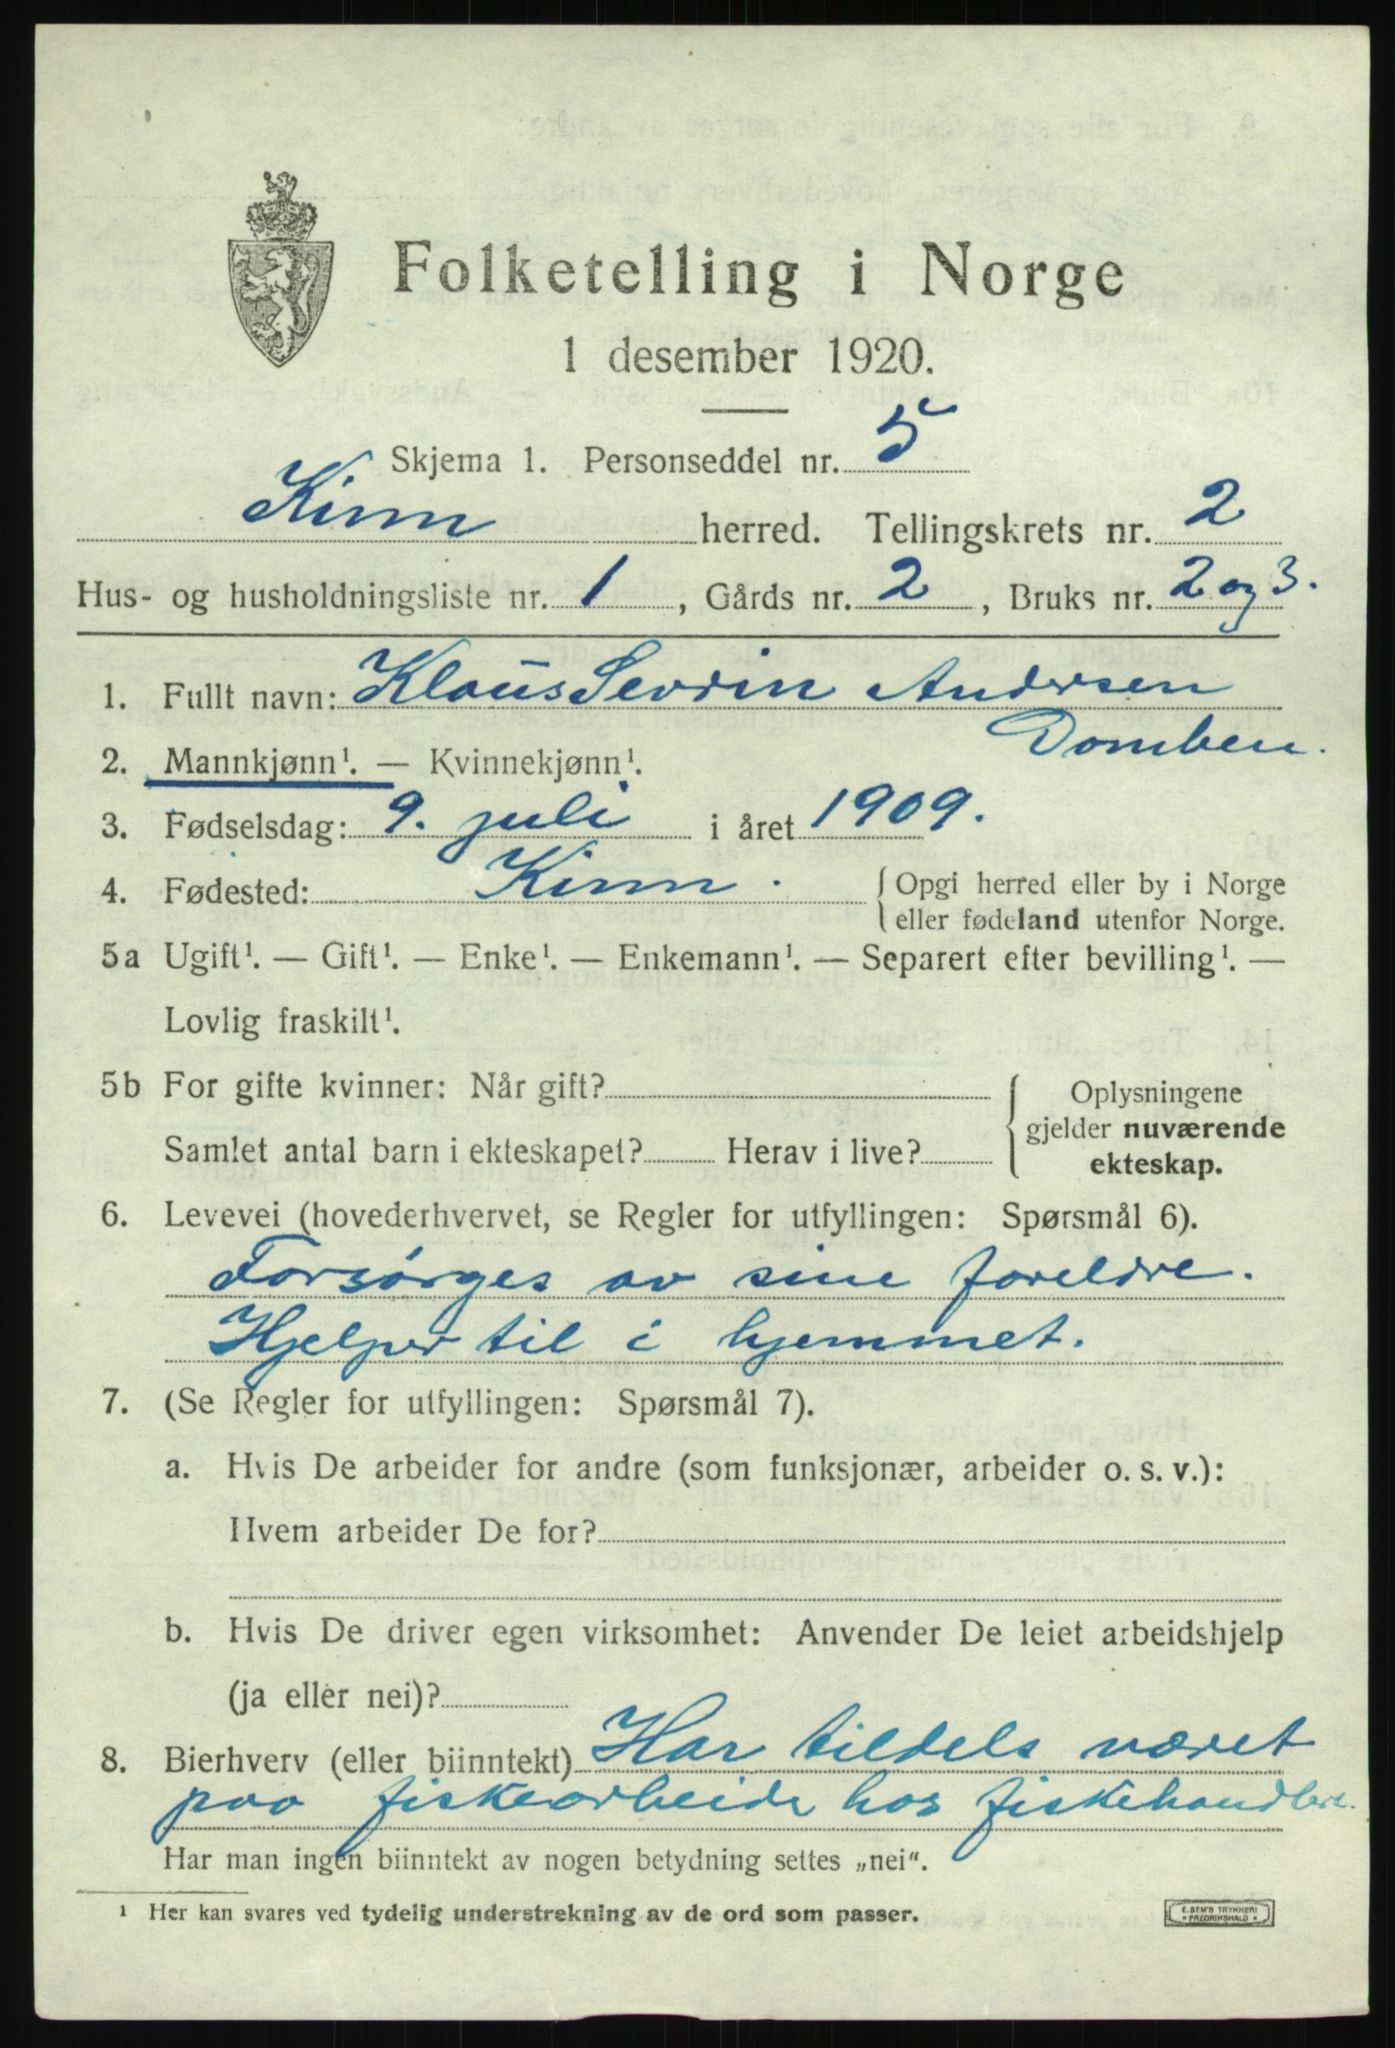 Folketelling i Norge
1 desember 1920.
Skjema 1. Personseddel nr. 5
Kinn herred. Tellingskrets nr. 2
Hus- og husholdningsliste nr. 1, Gårds nr. 2, Bruks nr. 2 og 3.
1. Fullt navn: Klaus Sevrin Andersen
Domben.
2. Mannkjønn¹. — Kvinnekjønn¹.
3. Fødselsdag: 9. juli i året 1909.
4. Fødested: Kinn. Opgi herred eller by i Norge
eller fødeland utenfor Norge.
5a Ugift¹. — Gift¹. — Enke¹. — Enkemann¹. — Separert efter bevilling¹. —
Lovlig fraskilt¹.
5b For gifte kvinner: Når gift? Oplysningene
gjelder nuværende
Samlet antal barn i ekteskapet? Herav i live? ekteskap.
6. Levevei (hovederhvervet, se Regler for utfyllingen: Spørsmål 6).
Forsørges av sine foreldre.
Hjelper til i hjemmet.
7. (Se Regler for utfyllingen: Spørsmål 7).
a. Hvis De arbeider for andre (som funksjonær, arbeider o. s. v.):
Hvem arbeider De for?
b. Hvis De driver egen virksomhet: Anvender De leiet arbeidshjelp
(ja eller nei)?
8. Bierhverv (eller biinntekt) Har tildels været
paa fiskearbeide hos fiskehandlere.
Har man ingen biinntekt av nogen betydning settes „nei".
¹ Her kan svares ved tydelig understrekning av de ord som passer.
E. SEM'S TRYKKERI
• FREDRIKSHALD •